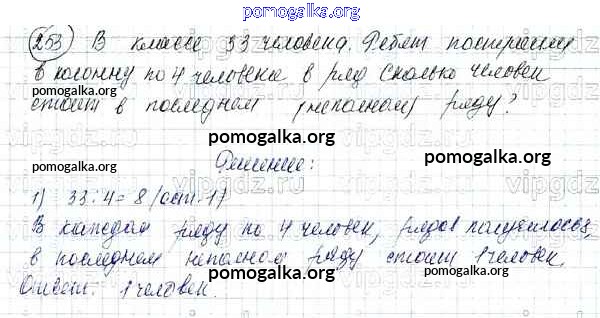 pomogalka.org
253 В классе 33 человека. Ребят построили
в колонну по 4 человека в ряд Сколько человек
стоит в последнем (неполном) ряду?
pomogalka.org
Решение:
pomogalka.org pomogalka.org
1) 33:4=8 (ост. 1)
В каждом ряду по 4 человек, рядов получилось 8,
в последнем неполном ряду стоит 1 человек.
pomogalka.org
Ответ: 1 человек.
vipgdz.ru